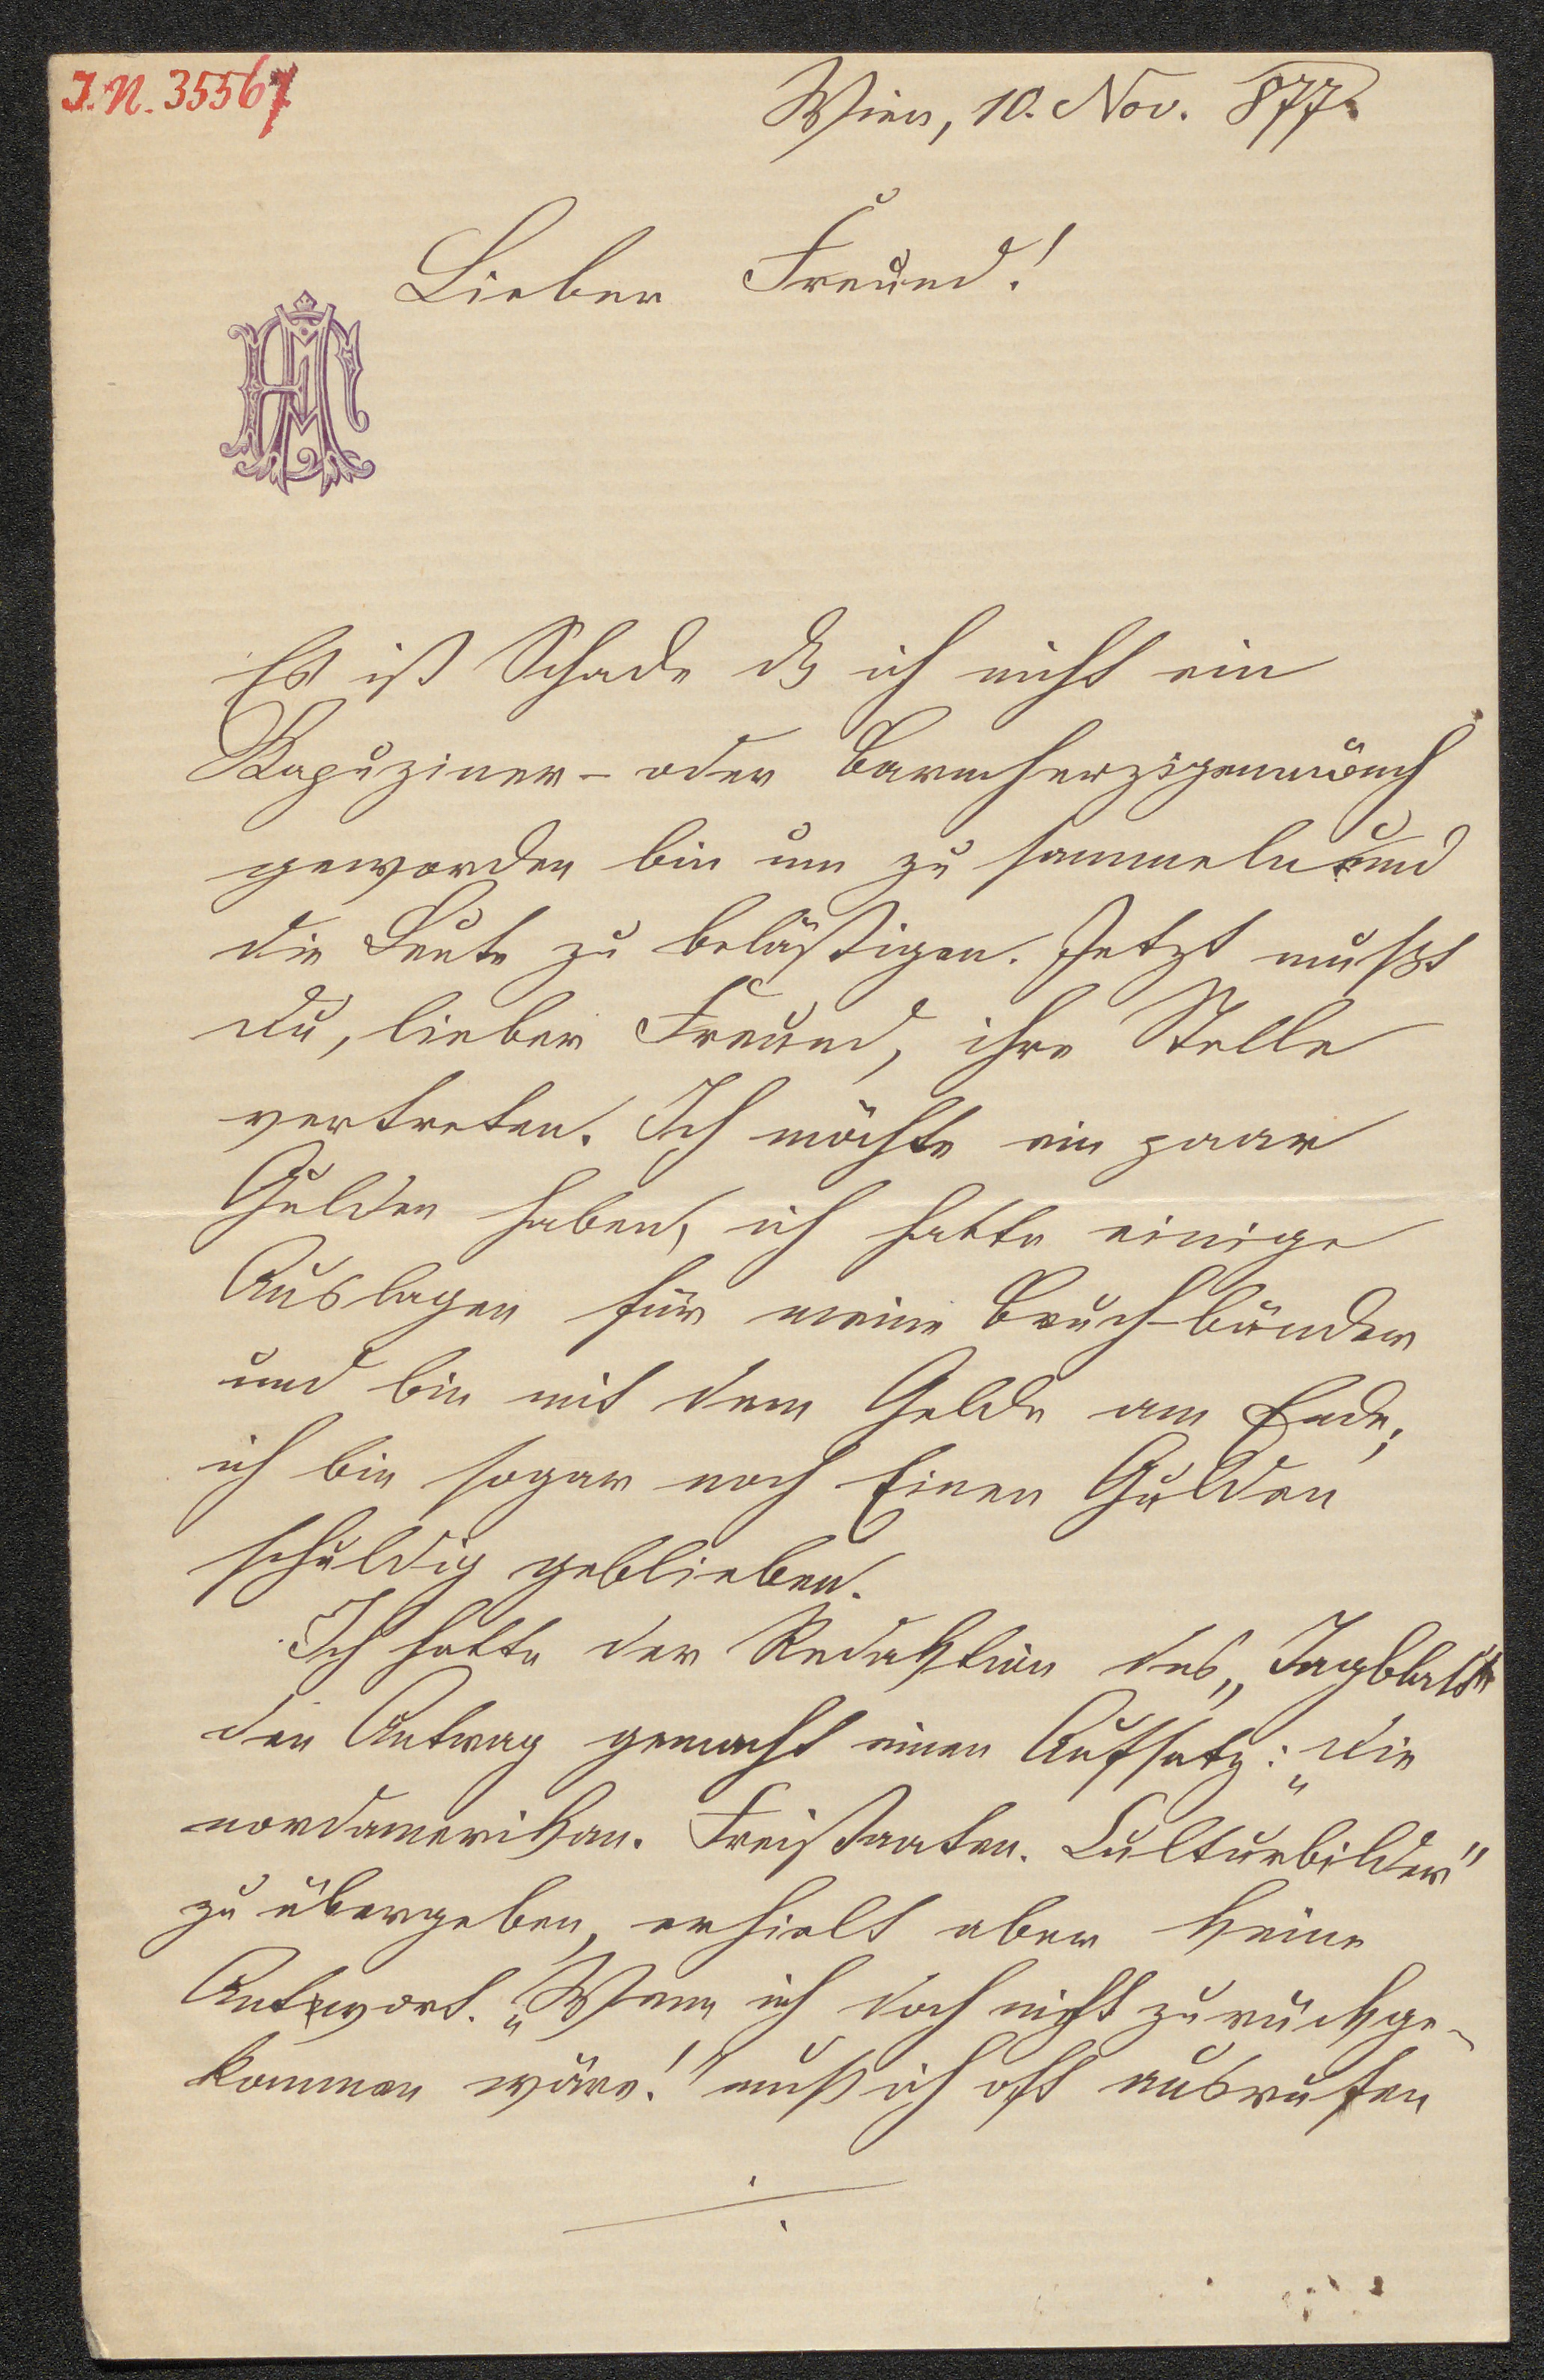 J.N. 35567
Wien, 10. Nov. 877.
Lieber Freund!
Es ist Schade dß ich nicht ein
Kapuziner- oder Barmherzigenmönch
geworden bin um zu sammeln und
die Leute zu belästigen. Jetzt mußt
du, lieber Freund, ihre Stelle
vertreten. Ich möchte ein paar
Gulden haben, ich hatte einige
Auslagen für meine Bruch-bänder
und bin mit dem Gelde am Ende;
ich bin sogar noch Einen Gulden
schuldig geblieben.
Ich hatte der Redaktion des „Tagblatt"
den Antrag gemacht einen Aufsatz: „Die
nordamerikan. Freistaaten. Culturbilder"
zu übergeben, erhielt aber keine
Antwort. „Wenn ich doch nicht zurückge-
kommen wäre!" muß ich oft ausrufen